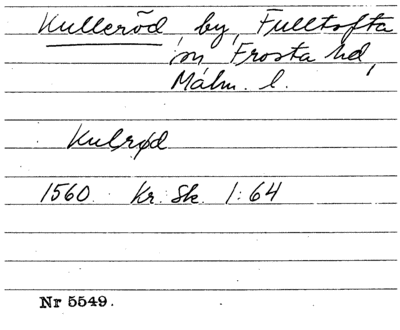 Kulleröd, by, Fulltofta
sn, Frosta hd,
Malm. l.
Kulrød
1560. Kr. Sk. 1:64
Nr 5549.